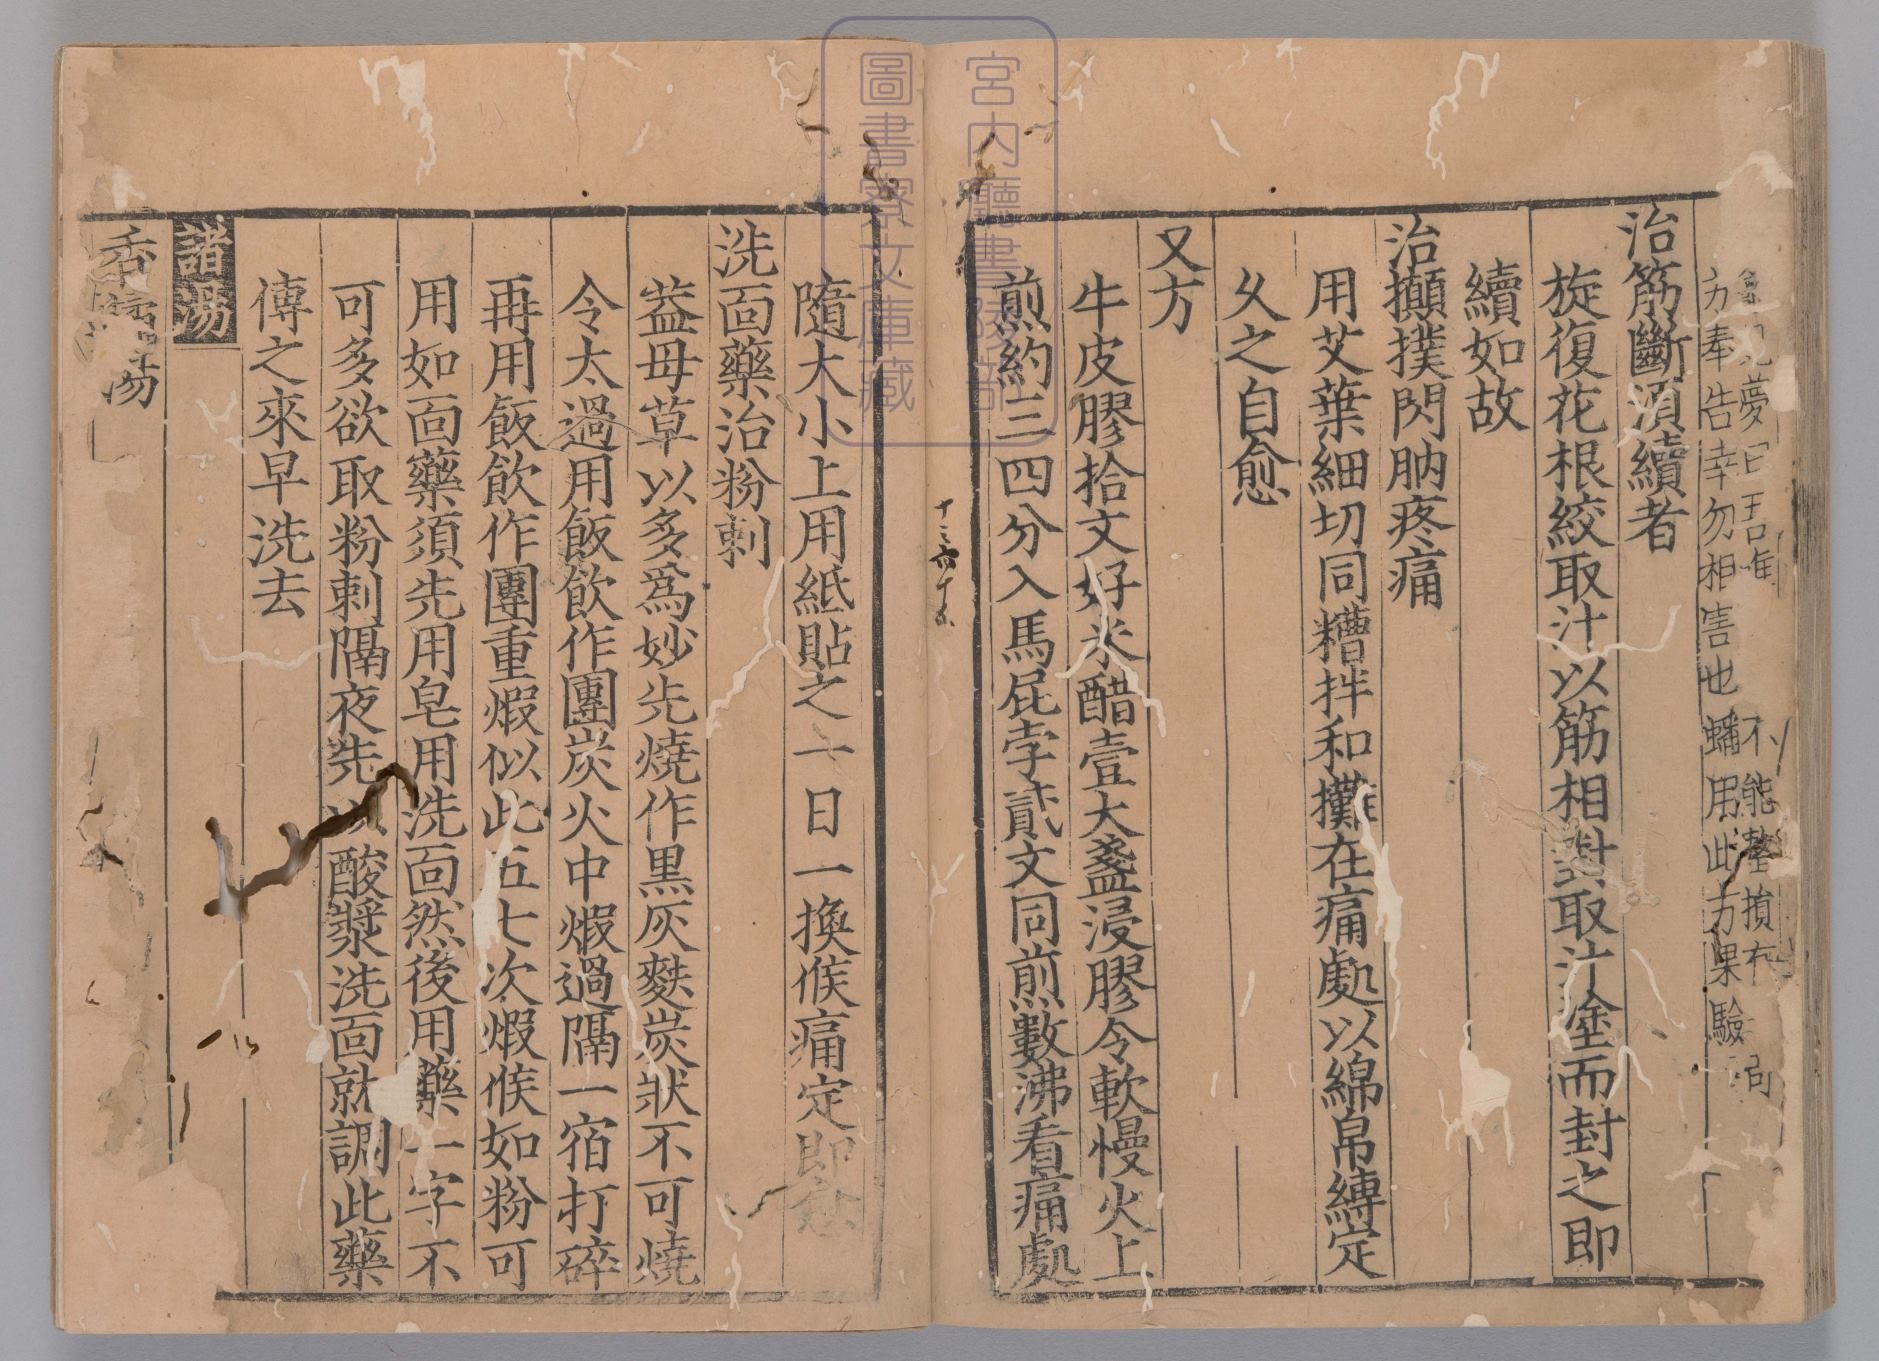 夢曰吾唯
不能整損
方奉告幸勿相害也蟠用此方果驗
治筋斷須續者
旋復花根絞取汁以筋相對取汁塗而封之即
續如故
治攧撲閃肭疼痛
用艾葉細切同糟拌和攤在痛處以綿帛縛定
久之自愈
又方
牛皮膠拾文好米醋壹大盞浸膠令軟慢火上
煎約三四分入馬屁孛貳文同煎數沸看痛處
隨大小上用紙貼之一日一換候痛定即愈
洗面藥治粉刺
益母草以多爲妙先燒作黑灰麩炭狀不可燒
令太過用飯飲作團炭火中煆過隔一宿打碎
再用飯飲作團重煆似此五七次煆候如粉可
用如面藥須先用皂用洗面然後用藥一字不
可多欲取粉刺隔夜先以酸漿洗面就調此藥
傅之來早洗去
諸湯
香 湯
宮内廳書陵部
圖書寮文庫藏